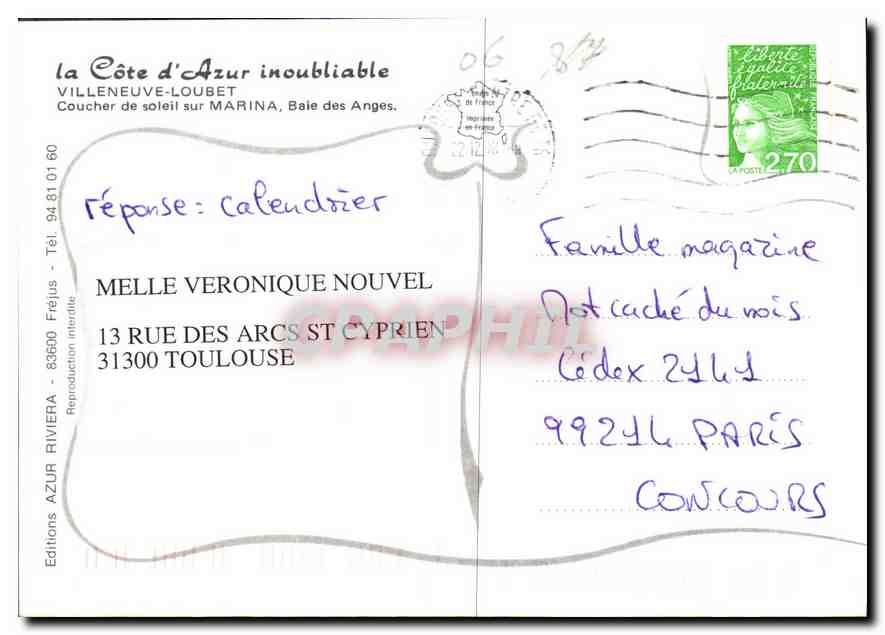 la Côte d'Azur inoubliable
VILLENEUVE-LOUBET
Coucher de soleil sur MARINA, Baie des Anges.
06
Image de France
Imprimée en France
liberté
égalité
fraternité
LA POSTE
2,70
réponse : calendrier
MELLE VERONIQUE NOUVEL
13 RUE DES ARCS ST CYPRIEN
31300 TOULOUSE
Famille magazine
Mot caché du mois
Cédex 2141
99214 PARIS
CONCOURS
Editions AZUR RIVIERA - 83600 Fréjus - Tél. 94 81 01 60
Reproduction interdite
CPAPHIL